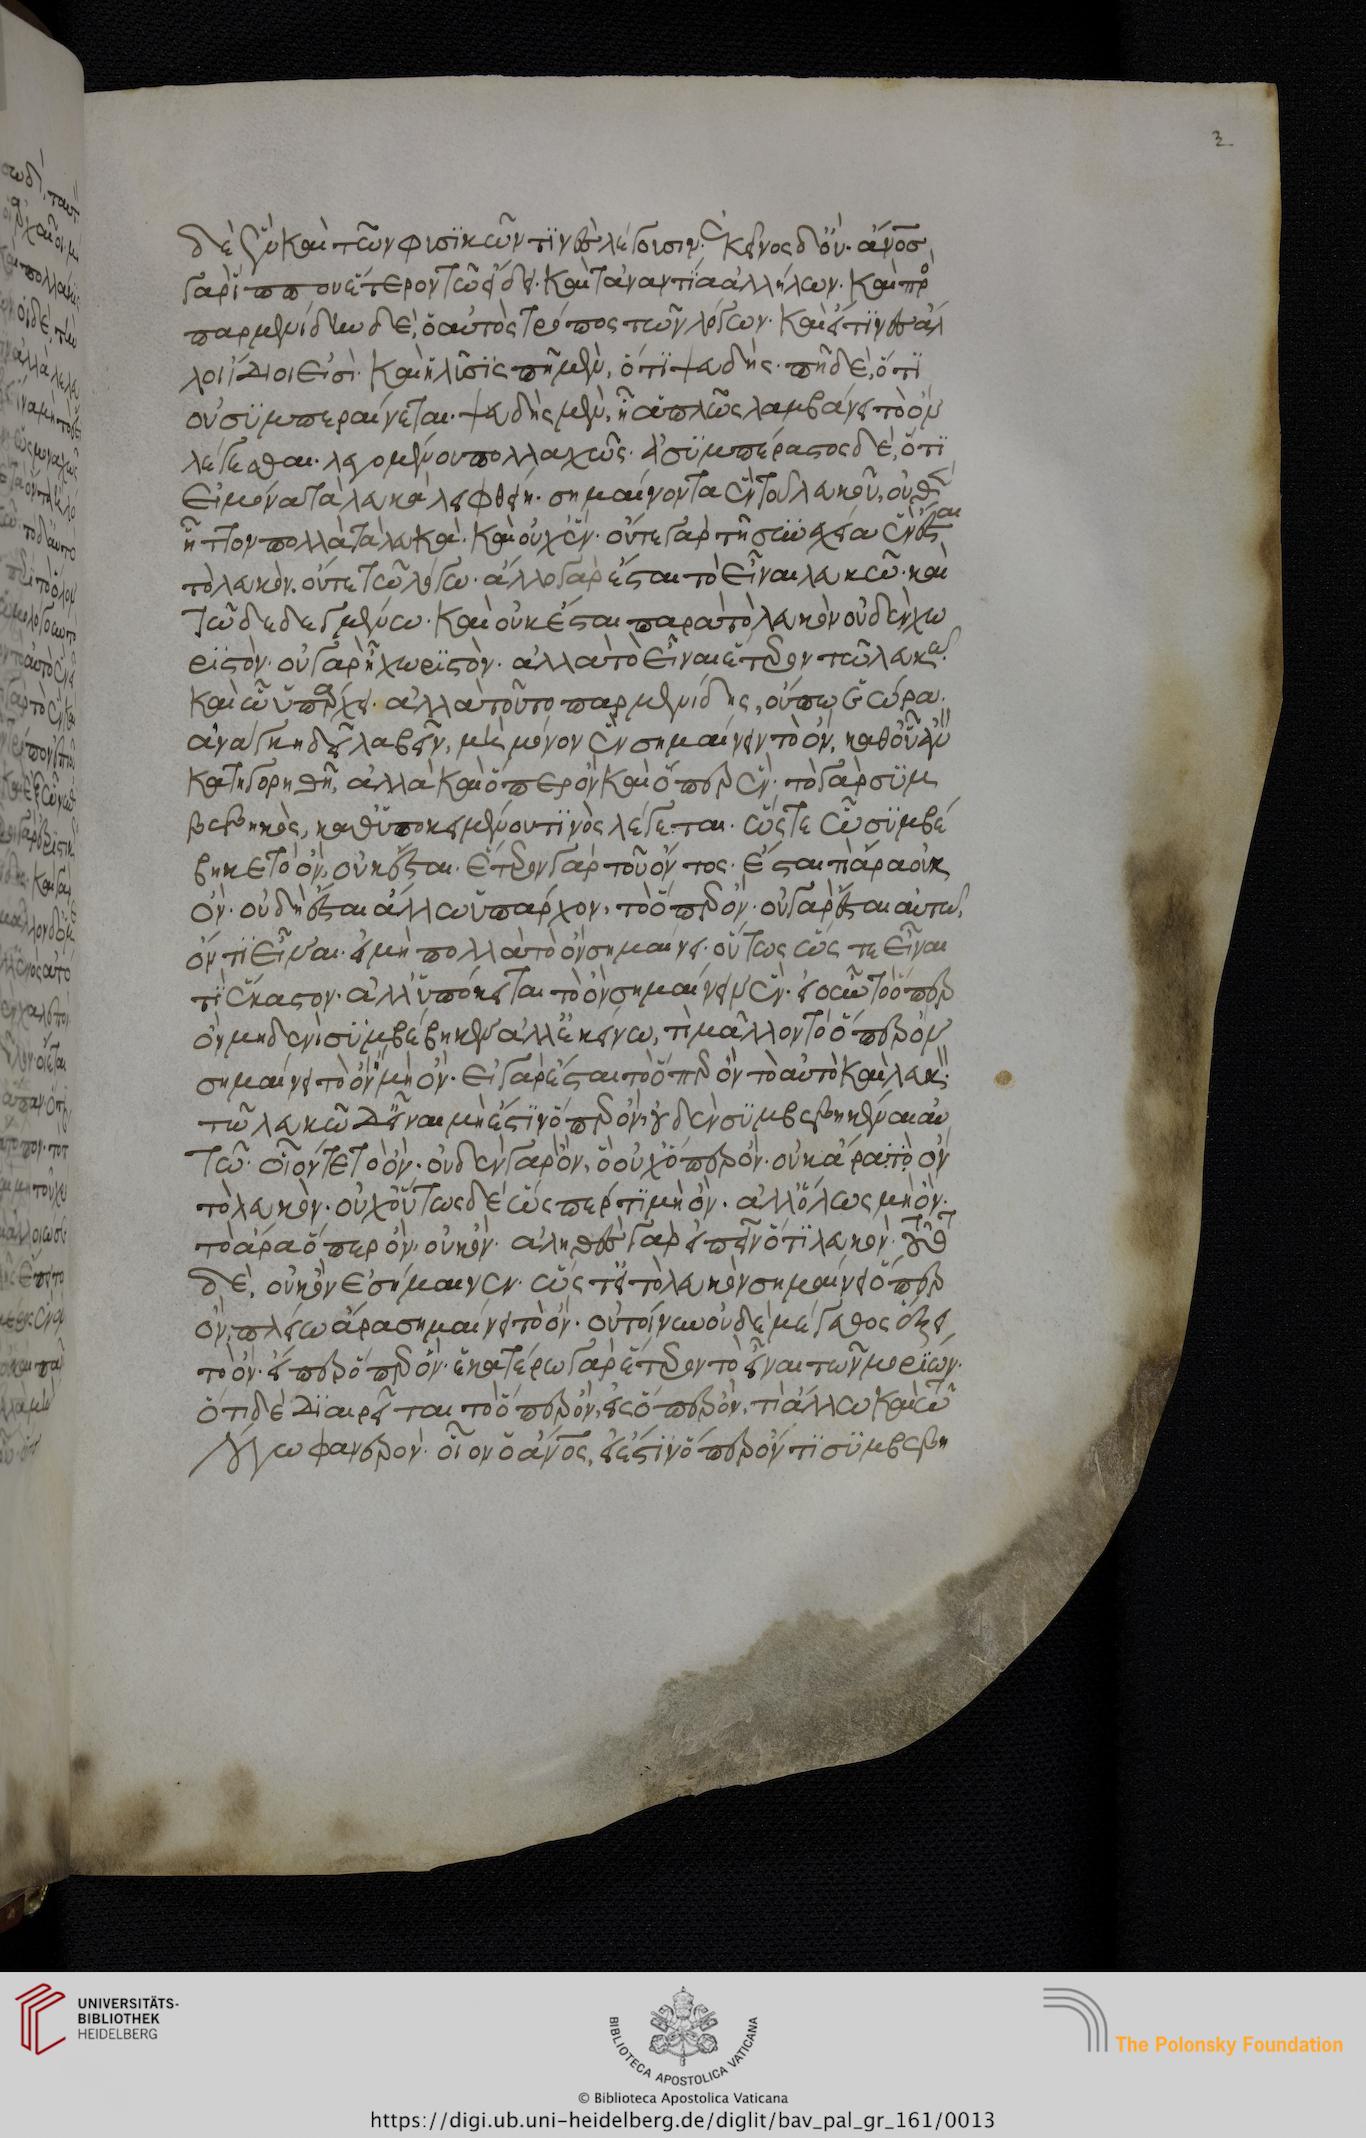 δὲ ἓν καὶ τῶν φυσϊκῶν τϊνὲς λέγουσιν· ἐκείνως δ' οὔ· ἄνος
γὰρ ἵππου ἕτερον τῶ εἴδει· καὶ τἀναντία ἀλλήλων· καὶ πρὸ
παρμενίδην δὲ, ὁ αὐτὸς τρόπος τῶν λόγων· καὶ εἴ τϊνες ἄλ
λοι ἴδιοι εἰσί· καὶ ἡ λῦσϊς πῆ μὲν, ὅτι ψευδής· πῆ δὲ, ὅτϊ
οὐ συμπεραίνεται· ψευδὴς μὲν, ἧ ἁπλῶς λαμβάνει τὸ ὂν
λέγεσθαι· λεγομένου πολλαχῶς· ἀσυμπέραστος δὲ, ὅτϊ
εἰ μόνα τὰ λευκὰ ληφθείη· σημαίνοντα ἓν τοῦ λευκοῦ, οὐθὲν
ἧττον πολλὰ τὰ λευκά· καὶ οὐχ ἕν· οὔτε γὰρ τῆ συνεχεία ἓν ἔσται
τὸ λευκόν. οὔτε τῶ λόγω· ἄλλο γὰρ ἔσται τὸ εἶναι λευκῶ· καὶ
τῶ δεδεγμένω· καὶ οὐκ ἔσται παρὰ τὸ λευκὸν οὐδὲν χω
ρϊστὸν· οὐ γὰρ ἧ χωρϊστὸν· ἀλλὰ τὸ εἶναι ἕτερον τῶ λευκῶ
καὶ ὧ ὑπάρχει· ἀλλὰ τοῦτο παρμενίδης, οὔπω συνεώρα·
ἀνάγκη δὴ λαβεῖν, μὴ μόνον ἓν σημαίνειν τὸ ὂν, καθ' οὗ ἂν
κατηγορηθῆ, ἀλλὰ καὶ ὅπερ ὂν καὶ ὅπερ ἕν· τὸ γὰρ συμ
βεβηκὸς, καθ' ὑποκειμένου τϊνὸς λέγεται· ὥστε ὧ συμβέ
βηκε τὸ ὂν, οὐκ ἔσται· ἕτερον γὰρ τοῦ ὄντος· ἔσται τὶ ἄρα οὐκ
ὄν· οὐ δὴ ἔσται ἄλλω ὑπάρχον, τὸ ὅπερ ὄν· οὐ γὰρ ἔσται αὐτω
ὄν τϊ εἶναι· εἰ μὴ πολλὰ τὸ ὂν σημαίνει· οὕτως ὥς τε εἶναι
τὶ ἕκαστον· ἀλλ' ὑπόκειται τὸ ὂν σημαίνειν ἕν· εἰ οὖν τὸ ὅπερ
ὂν μηδενὶ συμβέβηκεν ἀλλ' ἐκείνω, τὶ μᾶλλον τὸ ὅπερ ὂν
σημαίνει τὸ ὂν ἢ μὴ ὄν· εἰ γὰρ ἔσται τὸ ὅπερ ὂν τὸ αὐτὸ καὶ λευκόν·
τῶ λευκῶ δ' εἶναι μὴ ἔστιν ὅπερ ὄν, οὐδὲν συμβεβηκέναι αὐ
τῶ οἷόν τε τὸ ὄν· οὐδὲν γὰρ ὂν, ὃ οὐχ ὅπερ ὄν· οὐκ ἄρα τὸ ὂν
τὸ λευκὸν· οὐχ οὕτως δὲ ὥσπερ τϊ μὴ ὂν· ἀλλ' ὅλως μὴ ὄν·
τὸ ἄρα ὅπερ ὂν· οὐκ ὄν· ἀληθὲς γὰρ εἰπεῖν ὅτϊ λευκὸν· τοῦτο
δὲ, οὐκ ὂν ἐσήμαινεν· ὥς τ' εἰ τὸ λευκὸν σημαίνει ὅπερ
ὂν, πλείω ἄρα σημαίνει τὸ ὄν· οὐ τοίνυν οὐδὲ μέγεθος ἕξει
τὸ ὂν· εἴπερ ὅπερ ὄν· ἑκατέρω γὰρ ἕτερον τὸ εἶναι τῶν μορίων·
ὅτι δὲ διαιρεῖται τὸ ὅπερ ὂν, εἰς ὅπερ ὄν, τι ἄλλω καὶ τῶ
λόγω φανερὸν· οἷον ὁ ἄνος, εἰ ἔστϊν ὅπερ ὄν τϊ συμβεβη